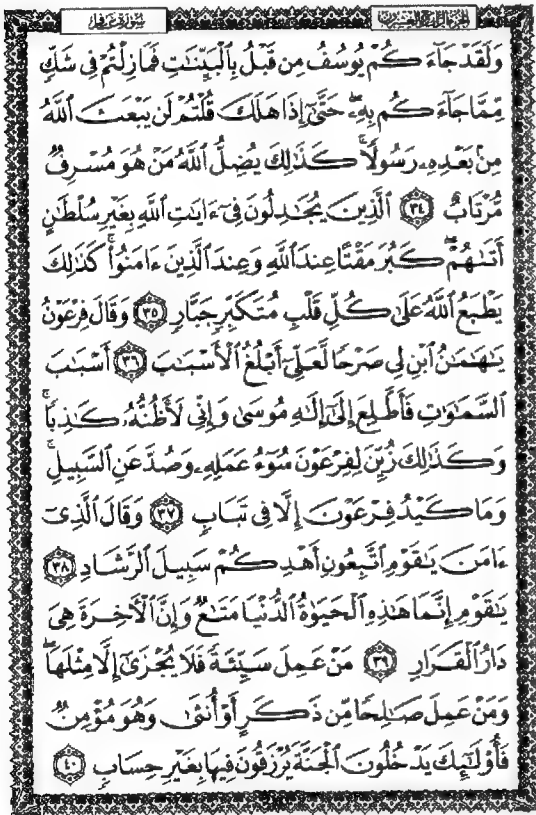 سورة غافر
الجزء الرابع والعشرون
وَلَقَدْ جَآءَكُمْ يُوسُفُ مِن قَبْلُ بِٱلْبَيِّنَٰتِ فَمَا زِلْتُمْ فِى شَكٍّ
مِّمَّا جَآءَكُم بِهِۦ ۖ حَتَّىٰٓ إِذَا هَلَكَ قُلْتُمْ لَن يَبْعَثَ ٱللَّهُ
مِنۢ بَعْدِهِۦ رَسُولًا ۚ كَذَٰلِكَ يُضِلُّ ٱللَّهُ مَنْ هُوَ مُسْرِفٌ
مُّرْتَابٌ ٣٤ ٱلَّذِينَ يُجَٰدِلُونَ فِىٓ ءَايَٰتِ ٱللَّهِ بِغَيْرِ سُلْطَٰنٍ
أَتَىٰهُمْ ۖ كَبُرَ مَقْتًا عِندَ ٱللَّهِ وَعِندَ ٱلَّذِينَ ءَامَنُوا۟ ۚ كَذَٰلِكَ
يَطْبَعُ ٱللَّهُ عَلَىٰ كُلِّ قَلْبِ مُتَكَبِّرٍ جَبَّارٍ ٣٥ وَقَالَ فِرْعَوْنُ
يَٰهَٰمَٰنُ ٱبْنِ لِى صَرْحًا لَّعَلِّىٓ أَبْلُغُ ٱلْأَسْبَٰبَ ٣٦ أَسْبَٰبَ
ٱلسَّمَٰوَٰتِ فَأَطَّلِعَ إِلَىٰٓ إِلَٰهِ مُوسَىٰ وَإِنِّى لَأَظُنُّهُۥ كَٰذِبًا ۚ
وَكَذَٰلِكَ زُيِّنَ لِفِرْعَوْنَ سُوٓءُ عَمَلِهِۦ وَصُدَّ عَنِ ٱلسَّبِيلِ ۚ
وَمَا كَيْدُ فِرْعَوْنَ إِلَّا فِى تَبَابٍ ٣٧ وَقَالَ ٱلَّذِىٓ
ءَامَنَ يَٰقَوْمِ ٱتَّبِعُونِ أَهْدِكُمْ سَبِيلَ ٱلرَّشَادِ ٣٨
يَٰقَوْمِ إِنَّمَا هَٰذِهِ ٱلْحَيَوٰةُ ٱلدُّنْيَا مَتَٰعٌ وَإِنَّ ٱلْءَاخِرَةَ هِىَ
دَارُ ٱلْقَرَارِ ٣٩ مَنْ عَمِلَ سَيِّئَةً فَلَا يُجْزَىٰٓ إِلَّا مِثْلَهَا ۖ
وَمَنْ عَمِلَ صَٰلِحًا مِّن ذَكَرٍ أَوْ أُنثَىٰ وَهُوَ مُؤْمِنٌ
فَأُو۟لَٰٓئِكَ يَدْخُلُونَ ٱلْجَنَّةَ يُرْزَقُونَ فِيهَا بِغَيْرِ حِسَابٍ ٤٠